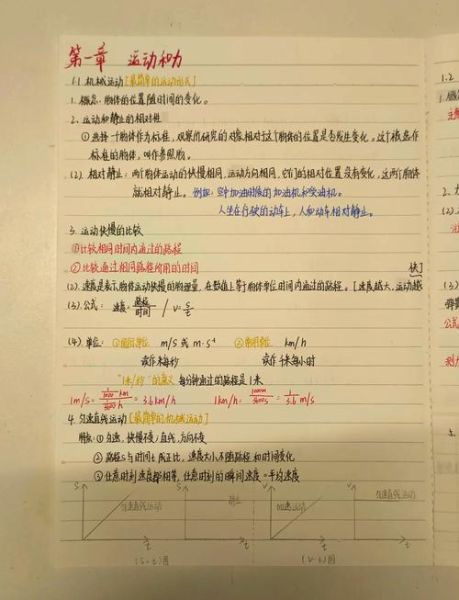 第一章 运动和力
1.1 机械运动[最简单的运动形式]
1. 概念：物体的位置随时间的变化。
2. 运动和静止的相对性
① 选择一个物体作为标准，观察所研究的对象相对于这个物体的位置是否发生变化。这个被选作
标准的物体，叫作参照物。
(2). 相对静止：两个物体运动的快慢相同，运动方向相同，它们的相对位置没有变化，这两个物体
就相对静止。例如：空中加油时候的加油机和受油机。
人坐在行驶的动车上，人和动车相对静止。
3. 运动快慢的比较
①比较相同时间内通过的路程
②比较通过相同路程所用的时间
(2). 速度是表示物体运动快慢的物理量，在数值上等于物体单位时间内通过的路程。[速度越大，运动越
快]
(3). 公式：速度=路程/时间 / v=s/t
(4). 单位：① 国际单位 m/s 或 m·s⁻¹ ② 常用单位 km/h
读作 米每秒 读作 千米每小时
"1米/秒"的意义 每秒钟通过的路程是1米
1m/s = = 3.6km/h 1km/h = = 1/3.6 m/s
4. 匀速直线运动[最简单的机械运动]
① 匀速，快慢不变；直线，方向不变
② 路程s与时间t成正比，速度大小不随路程和时间变化
③ 任意时刻速度都相等，任意时刻的瞬间速度=平均速度
s
匀速直线运动
t
s
静止
t
v
加速运动
t
v
匀速直线运动
t
(s-t)图
(v-t)图
1.2